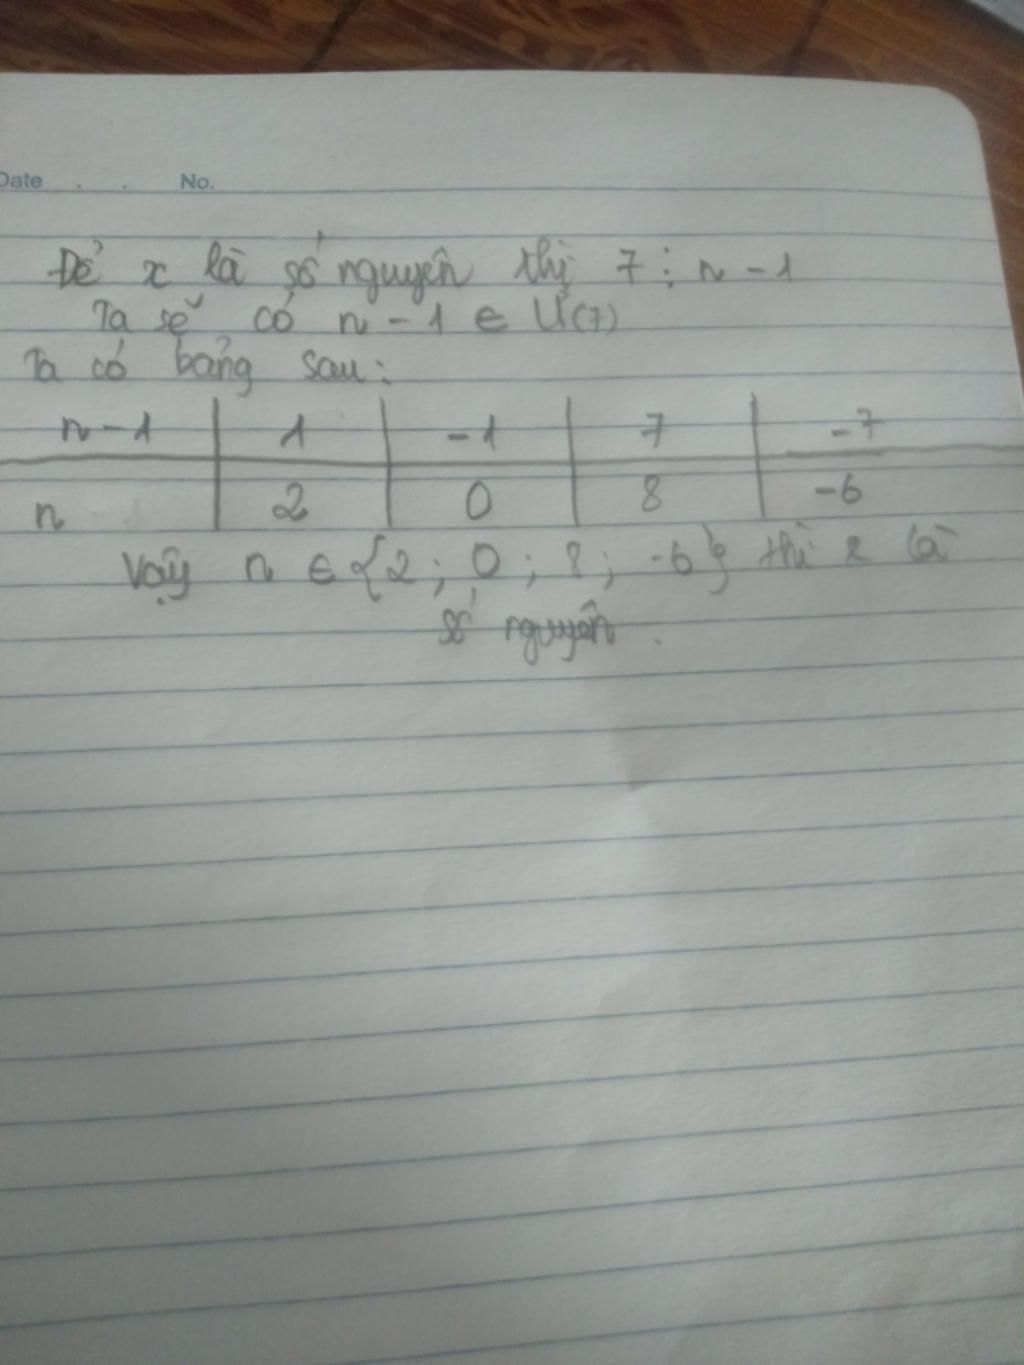 Date . . No.
Để x là số nguyên thì 7 ⋮ n - 1
Ta sẽ có n - 1 ∈ Ư(7)
Ta có bảng sau:
n - 1 | 1 | -1 | 7 | -7
n | 2 | 0 | 8 | -6
Vậy n ∈ {2; 0; 8; -6} thì x là
số nguyên.